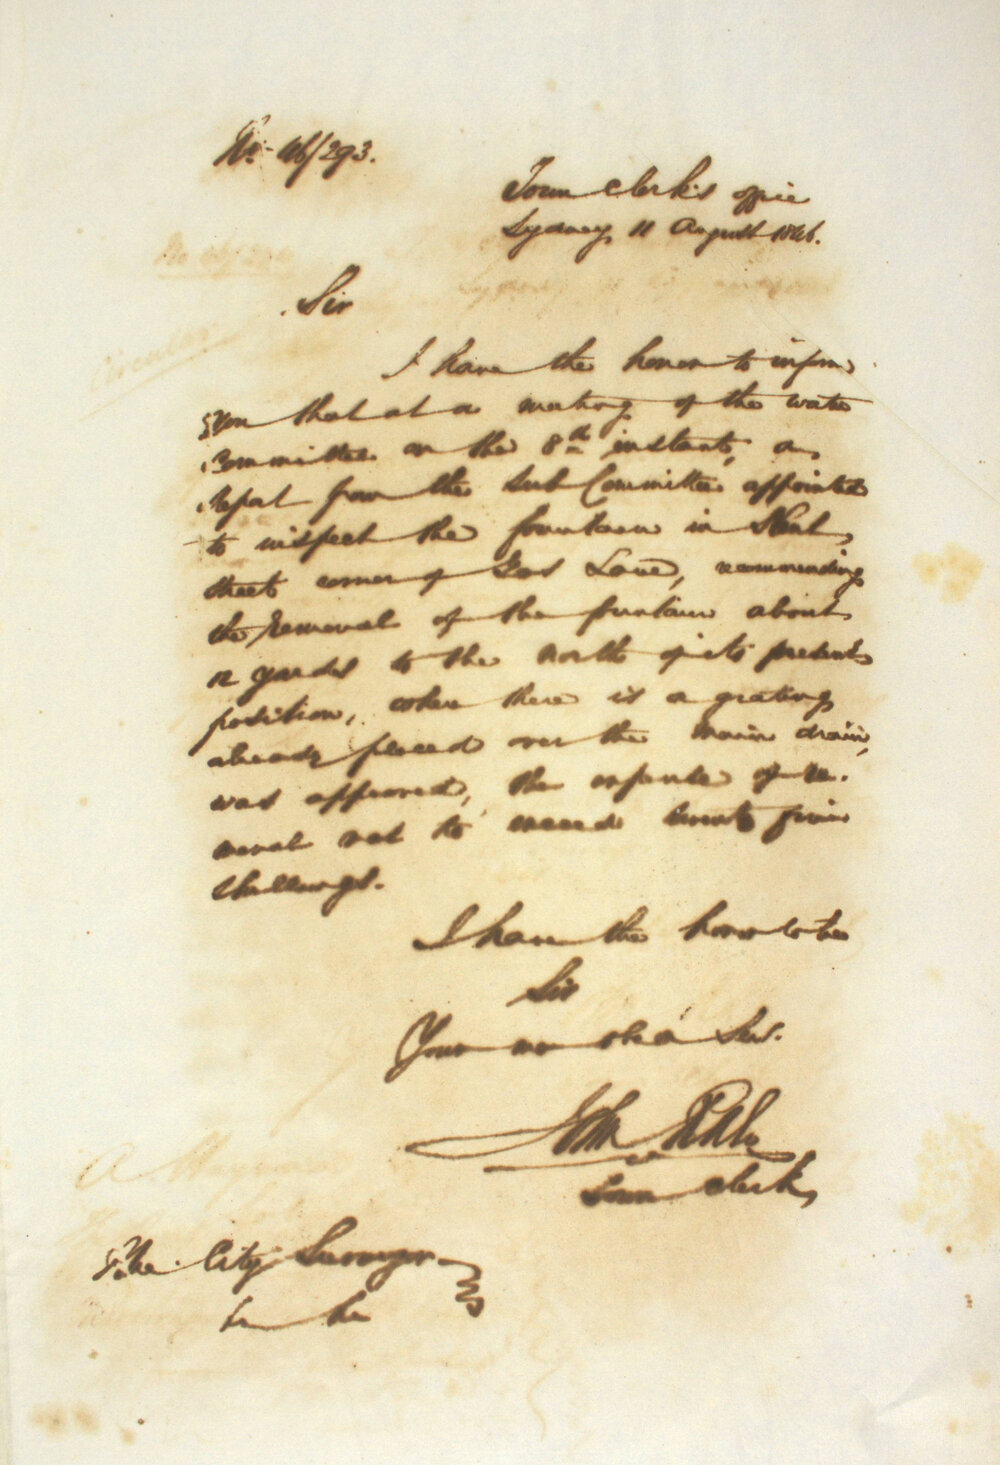 No. 46/293.
Town Clerk's office
Sydney, 11 August 1846.
Sir
I have the honor to inform
you that at a meeting of the Water
Committee on the 8th instant, a
report from the Sub Committee appointed
to inspect the fountain in Kent
Street corner of Gas Lane, recommending
the removal of the fountain about
12 yards to the north of its present
position, where there is a grating
already placed over the main drain,
was approved, the expense of re-
moval not to exceed twenty five
shillings.
I have the honor to be
Sir
Your mo obed Ser.
John
Town Clerk,
The City Surveyor